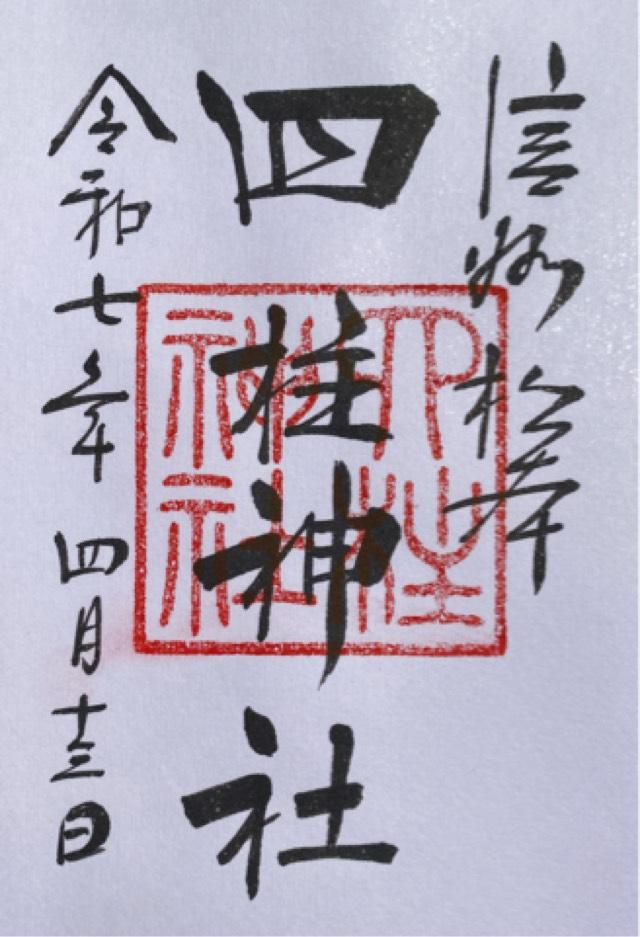 信州松本
四柱神社
四柱神社
令和七年四月十三日